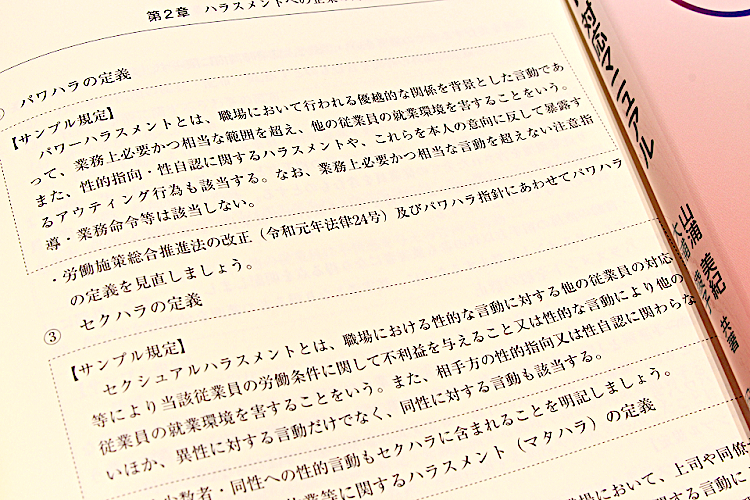 第2章 ハラスメントへの企業の
パワハラの定義
【サンプル規定】
パワーハラスメントとは、職場において行われる優越的な関係を背景とした言動であ
って、業務上必要かつ相当な範囲を超え、他の従業員の就業環境を害することをいう。
また、性的指向・性自認に関するハラスメントや、これらを本人の意向に反して暴露す
るアウティング行為も該当する。なお、業務上必要かつ相当な言動を超えない注意指
導・業務命令等は該当しない。
・労働施策総合推進法の改正（令和元年法律24号）及びパワハラ指針にあわせてパワハラ
の定義を見直しましょう。
③ セクハラの定義
【サンプル規定】
セクシュアルハラスメントとは、職場における性的な言動に対する他の従業員の対応
等により当該従業員の労働条件に関して不利益を与えること又は性的な言動により他の
従業員の就業環境を害することをいう。また、相手方の性的指向又は性自認に関わらな
いほか、異性に対する言動だけでなく、同性に対する言動も該当する。
少数者・同性への性的言動もセクハラに含まれることを明記しましょう。
業等に関するハラスメント（マタハラ）の定義
場において、上司や同僚
対応マニュアル
山浦 美紀
共著